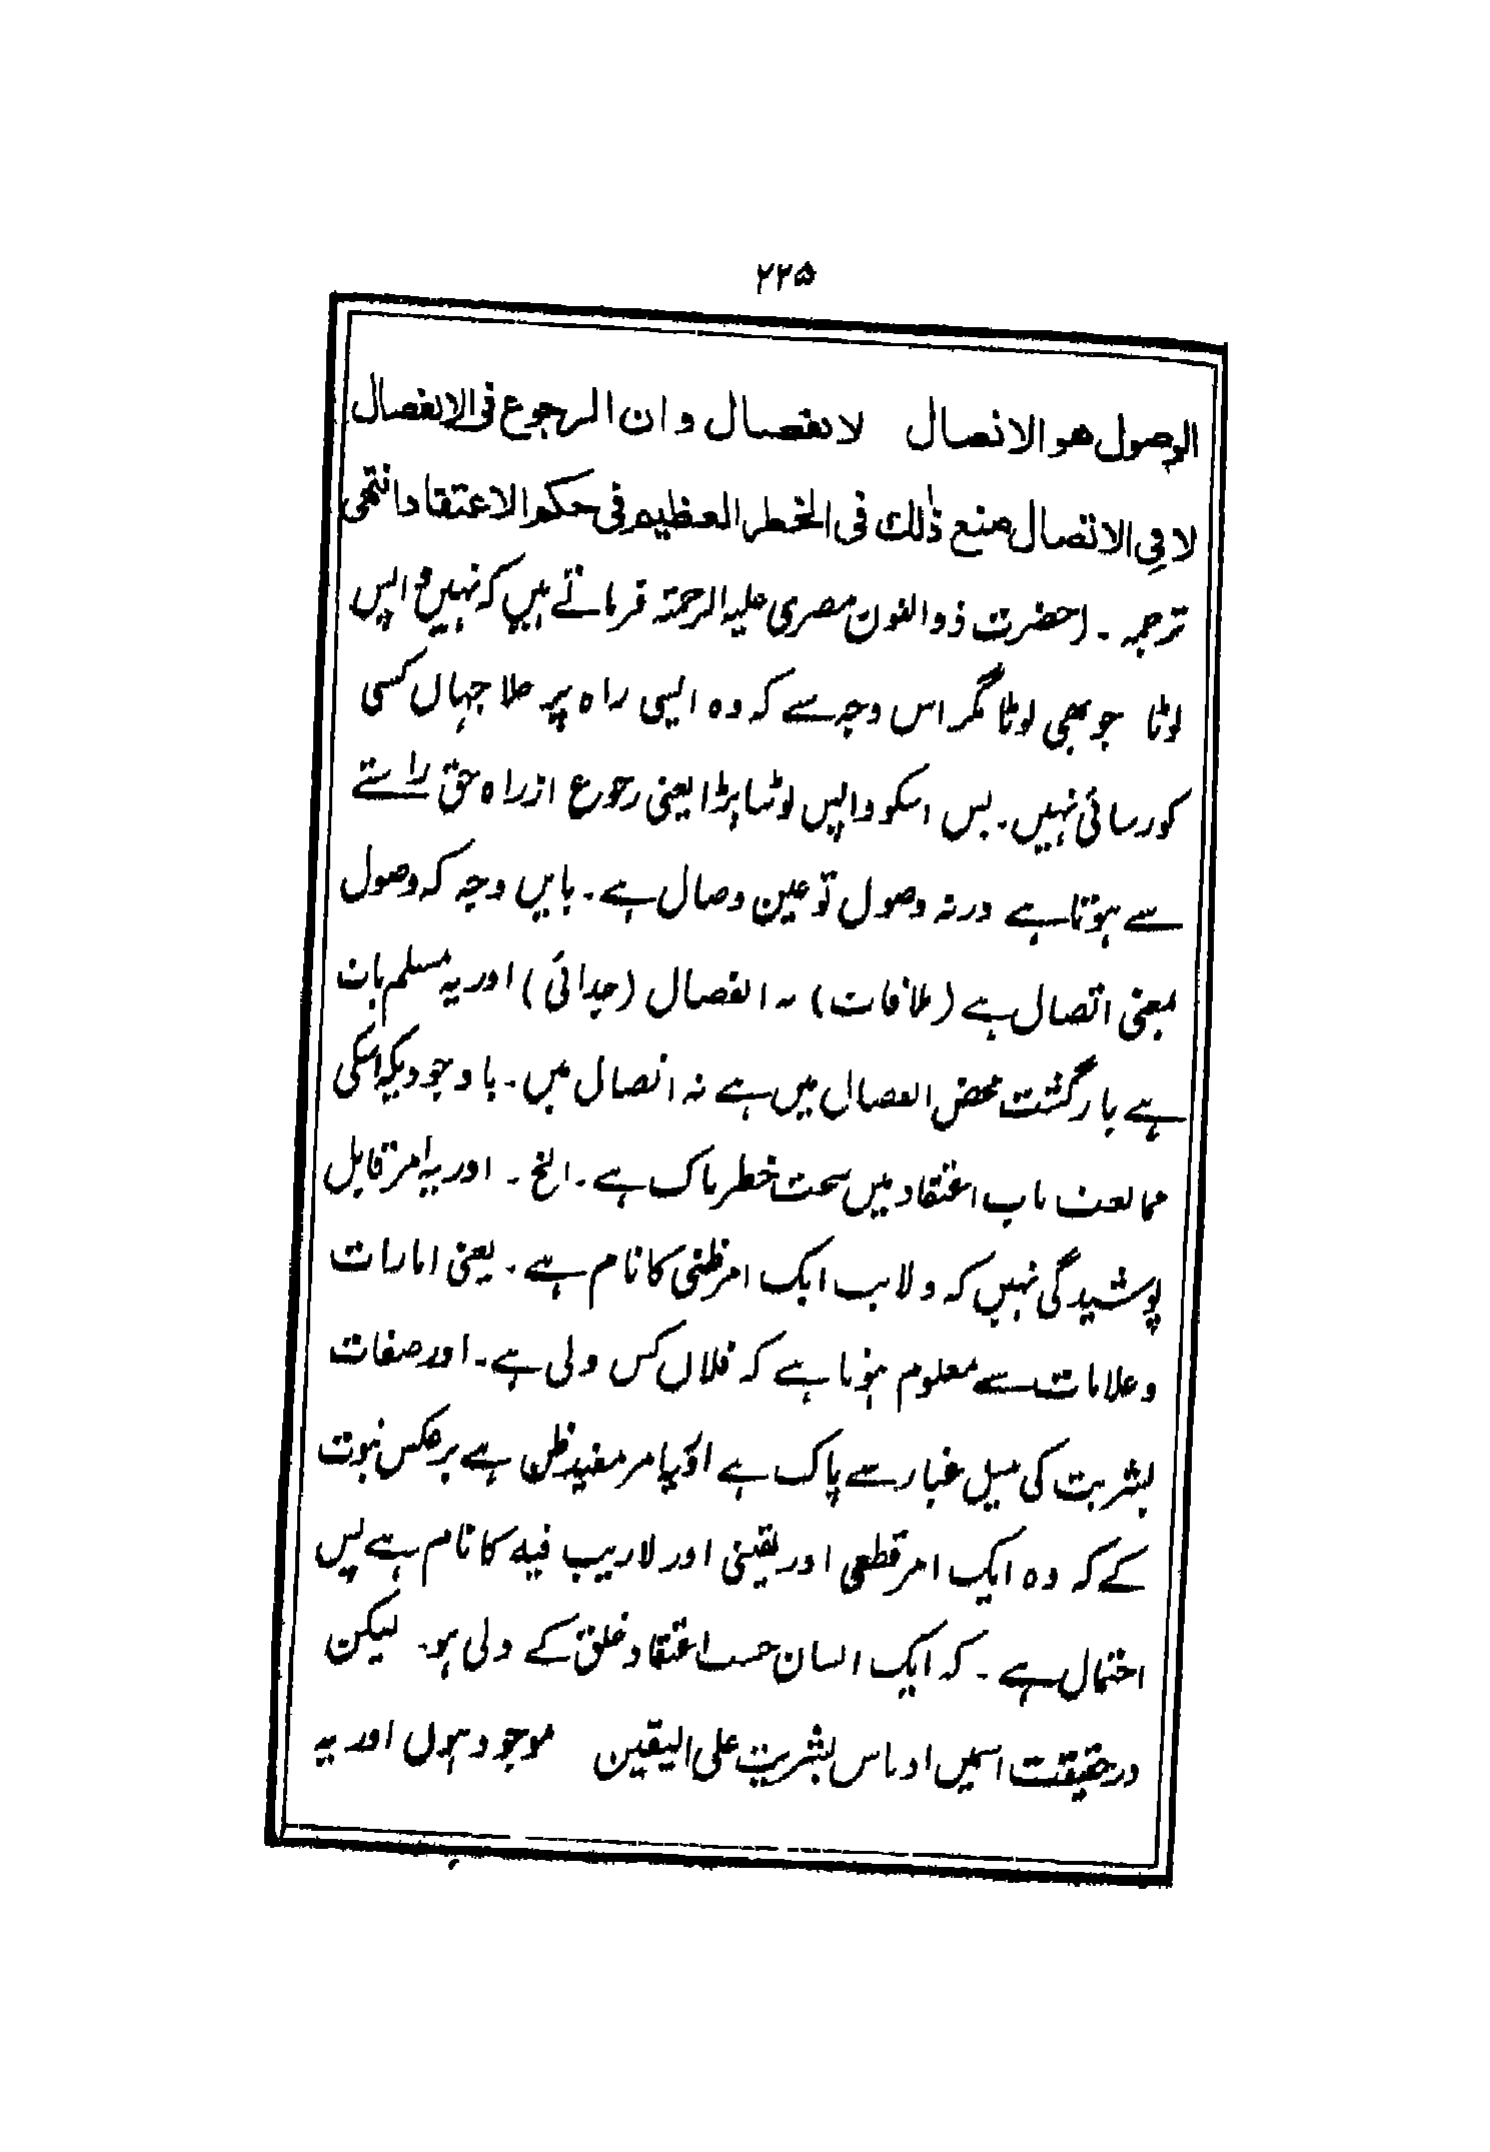 ۲۲۵
الوصول هو الاتصال لا انفصال و ان الرجوع فی الانفصال
لا فی الاتصال منع ذٰلك فی الخطر العظیم فی حکم الاعتقاد انتهی
ترجمہ ۔ (حضرت ذوالنون مصری علیہ الرحمتہ فرماتے ہیں کہ نہیں واپس
لوٹا جو بھی لوٹا مگر اس وجہ سے کہ وہ ایسی راہ پر چلا جہاں کسی
کو رسائی نہیں۔ بس اسکو واپس لوٹنا پڑا یعنی رجوع از راہ حق راستے
سے ہوتا ہے ورنہ وصول تو عین وصال ہے۔ بایں وجہ کہ وصول
بمعنی اتصال ہے (ملاقات) نہ انفصال (جدائی) اور یہ مسلم بات
ہے بازگشت محض انفصال میں ہے نہ اتصال میں۔ باوجودیکہ اسکی
ممانعت باب اعتقاد میں سخت خطرناک ہے۔ الخ ۔ اور یہ امر قابل
پوشیدگی نہیں کہ ولایت ایک امر ظنی کا نام ہے۔ یعنی امارات
و علامات سے معلوم ہوتا ہے کہ فلاں کس ولی ہے۔ اور صفات
بشریت کی میل غبار سے پاک ہے امر مفید ظن ہے برعکس نبوت
کے کہ وہ ایک امر قطعی اور یقینی اور لاریب فیہ کا نام ہے پس
احتمال ہے۔ کہ ایک انسان حسب اعتقاد خلق کے ولی ہو۔ لیکن
درحقیقت اسمیں ادناس بشریت علی الیقین موجود ہوں اور یہ